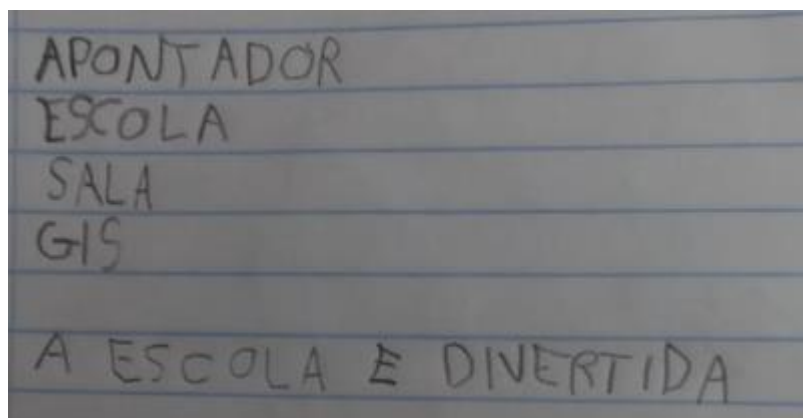 APONTADOR
ESCOLA
SALA
GIS
A ESCOLA E DIVERTIDA